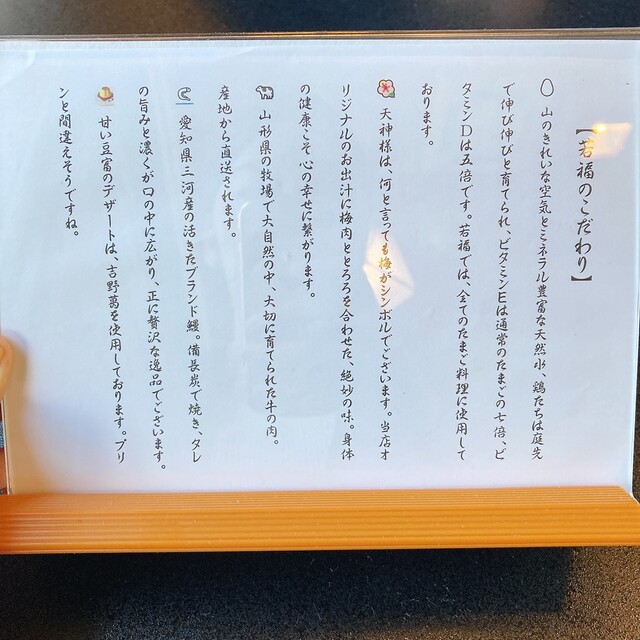 【若福のこだわり】
山のきれいな空気とミネラル豊富な天然水、鶏たちは庭先
で伸び伸びと育てられ、ビタミンEは通常のたまごの七倍、ビ
タミンDは五倍です。若福では、全てのたまご料理に使用して
おります。
天神様は、何と言っても梅がシンボルでございます。当店オ
リジナルのお出汁に梅肉ととろろを合わせた、絶妙の味。身体
の健康こそ心の幸せに繋がります。
山形県の牧場で大自然の中、大切に育てられた牛の肉。
産地から直送されます。
愛知県三河産の活きたブランド鰻。備長炭で焼き、タレ
の旨みと濃くが口の中に広がり、正に贅沢な逸品でございます。
甘い豆富のデザートは、吉野葛を使用しております。プリ
ンと間違えそうですね。